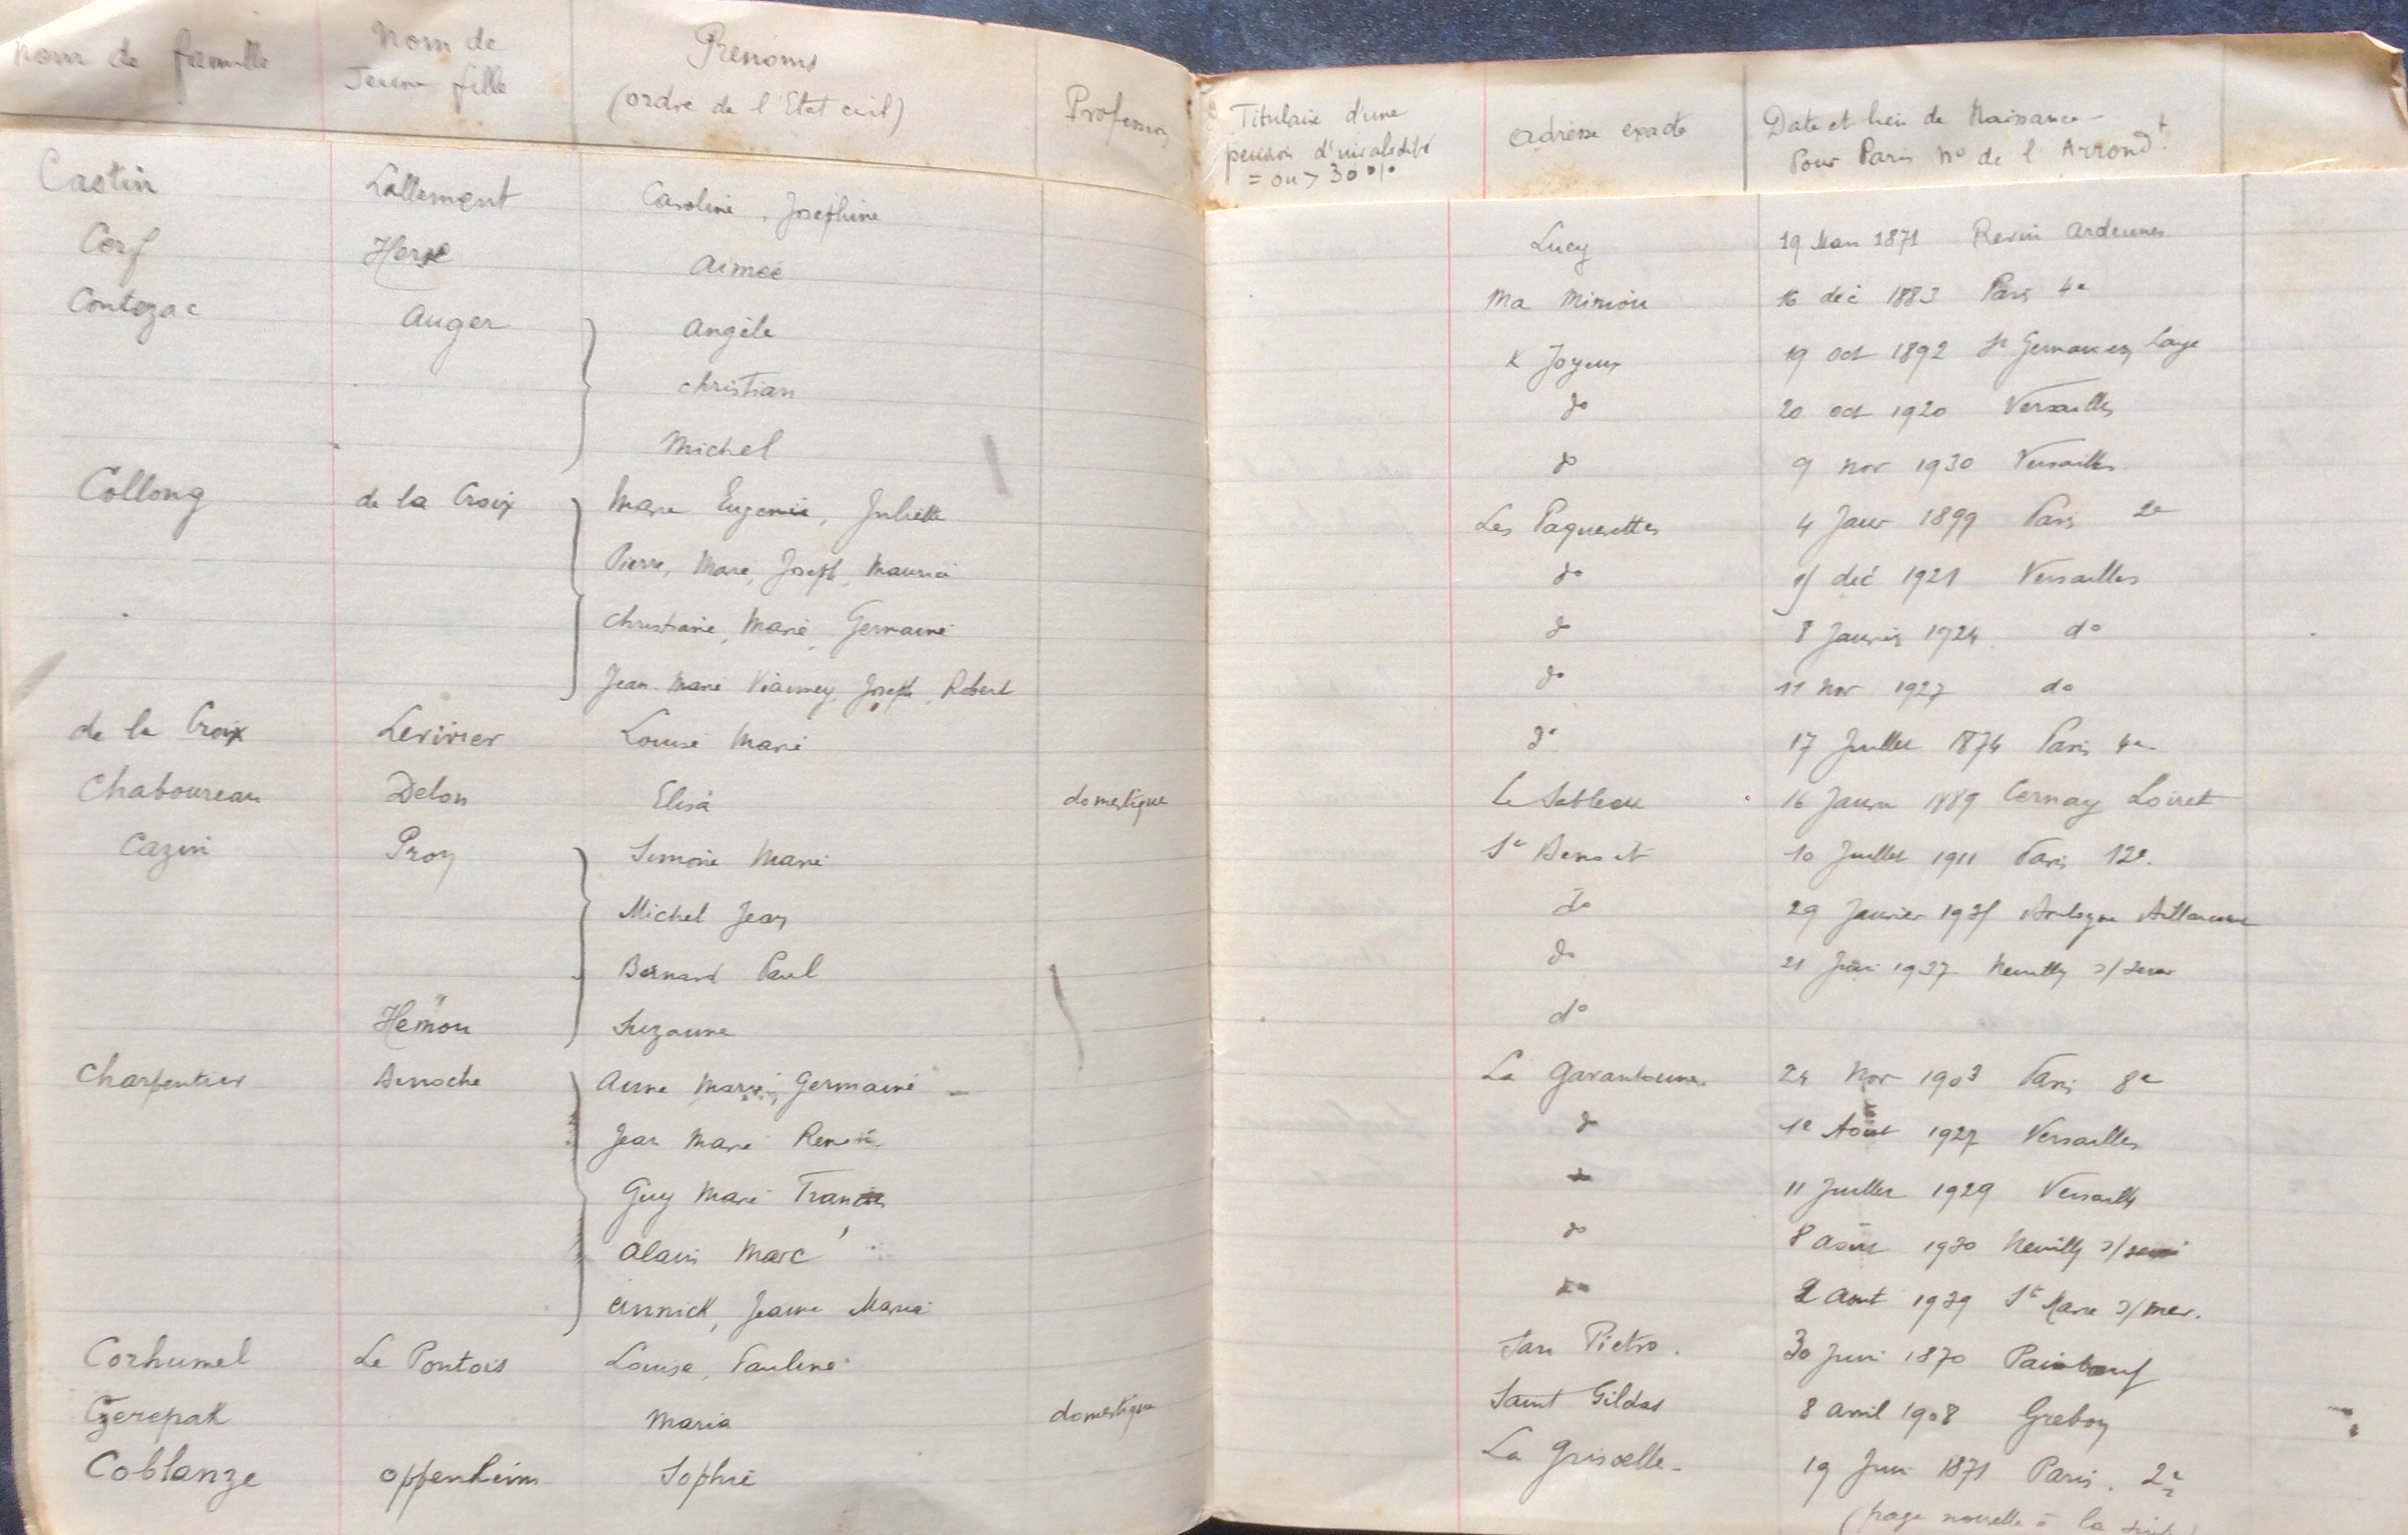 Nom de famille Nom de Jeune fille Prenoms (ordre de l'Etat civil) Profession Titulaire d'une pension d'invalidité = ou > 30 % adresse exacte Date et lieu de Naissance - Pour Paris No de l'Arrondt
Castin Lallement Caroline, Josephine Lucy 19 Mars 1871 Revin Ardennes
Cerf Aimée Ma 16 dec 1883 Paris 4e
Contozac Auger Angèle Joyeux 19 oct 1892 St Germain en Laye
Christian do 20 oct 1920 Versailles
Michel do 9 nov 1930 Versailles
Collong de la Croix Marie Eugenie, Juliette Les Paquerettes 4 Janv 1899 Paris 2e
Pierre, Marie, Joseph, Maurice do dec 1921 Versailles
Christiane, Marie, Germaine do 8 Janvier 1924 do
Jean Marie Vianney, Joseph, Robert do 11 nov 1927 do
de la Croix Levivier Louise Marie do 17 Juillet 1874 Paris 4e
Chaboureau Delon Elisa domestique Le 16 Janv 1889 Cernay Loiret
Cazin Proy Simone Marie St Benoit 10 Juillet 1911 Paris 12e.
Michel Jean do 29 Janvier
Bernard Paul do 21 Juin 1937 Neuilly s/Seine
Hémon Suzanne do
Charpentier Benoche Anne Marie, Germaine La 24 Nov 1903 Paris 8e
Jean Marie René do 1e Août 1927 Versailles
Guy Marie Francis 11 Juillet 1929 Versailles
Alain Marc do 8 août 1930 Neuilly s/Seine
Annick, Jeanne Maria do 2 Aout 1939 Ste Marie s/mer.
Corhumel Le Pontois Louise, Pauline San Pietro. 30 Juin 1870 Paimboeuf
Czerepak Maria domestique Saint Gildas 8 avril 1908 Grebow
Coblanze Oppenheim Sophie La Griselle - 19 Juin 1871 Paris. 2e
(page nouvelle à la suite)